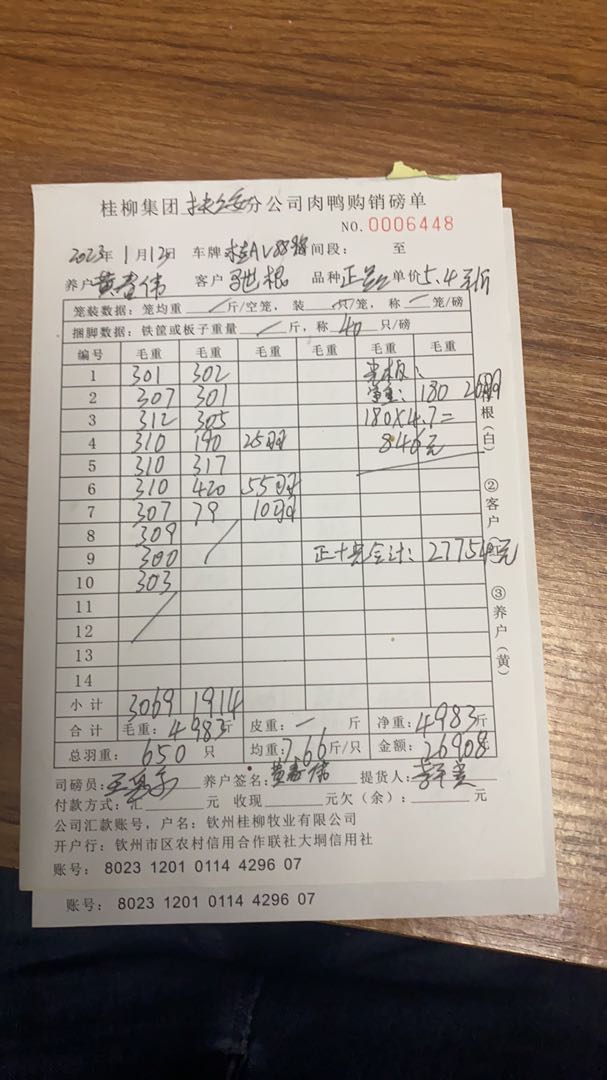 桂柳集团扶绥分公司肉鸭购销磅单
NO.0006448
2023年1月12日 车牌 桂AV 时间段: 至
养户 黄春伟 客户 品种 正 单价5.4元/斤
笼装数据:笼均重 / 斤/空笼,装 只/笼,称 笼/磅
捆脚数据:铁筐或板子重量 / 斤,称 40 只/磅
编号 毛重 毛重 毛重 毛重 毛重 毛重
1 301 302
2 307 301 180
3 312 305 180×4.7=
4 310 190 25羽 846元
5 310 317
6 310 420 55羽
7 307 79 10羽
8 309
9 300 合计: 27754元
10 303
11
12
13
14
小计 3069 1914
合计 毛重:4983斤 皮重:一 斤 净重:4983斤
总羽重:650只 均重:7.66斤/只 金额:26908
根(白) ②客户 ③养户(黄)
司磅员: 养户签名:黄春伟 提货人:
付款方式:汇 元 收现 元欠(余): 元
公司汇款账号,户名:钦州桂柳牧业有限公司
开户行:钦州市区农村信用合作联社大垌信用社
账号: 8023 1201 0114 4296 07
账号: 8023 1201 0114 4296 07